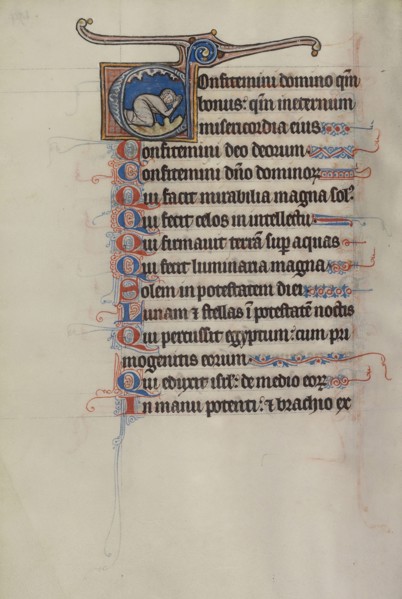 Confitemini domino qm̄
bonus: qm̄ in eternum
misericordia eius
Confitemini deo deorum
Confitemini dn̄o dominoꝝ
Qui facit mirabilia magna sol᷒
Qui fecit celos in intellectu
Qui firmauit terrā sup̄ aquas
Qui fecit luminaria magna
Solem in potestatem diei
Lunam ⁊ stellas ī potestatē noctis
Qui percussit egyptum: cum pri
mogenitis eorum
Qui eduxit isr̄l: de medio eoꝝ
In manu potenti: ⁊ brachio ex